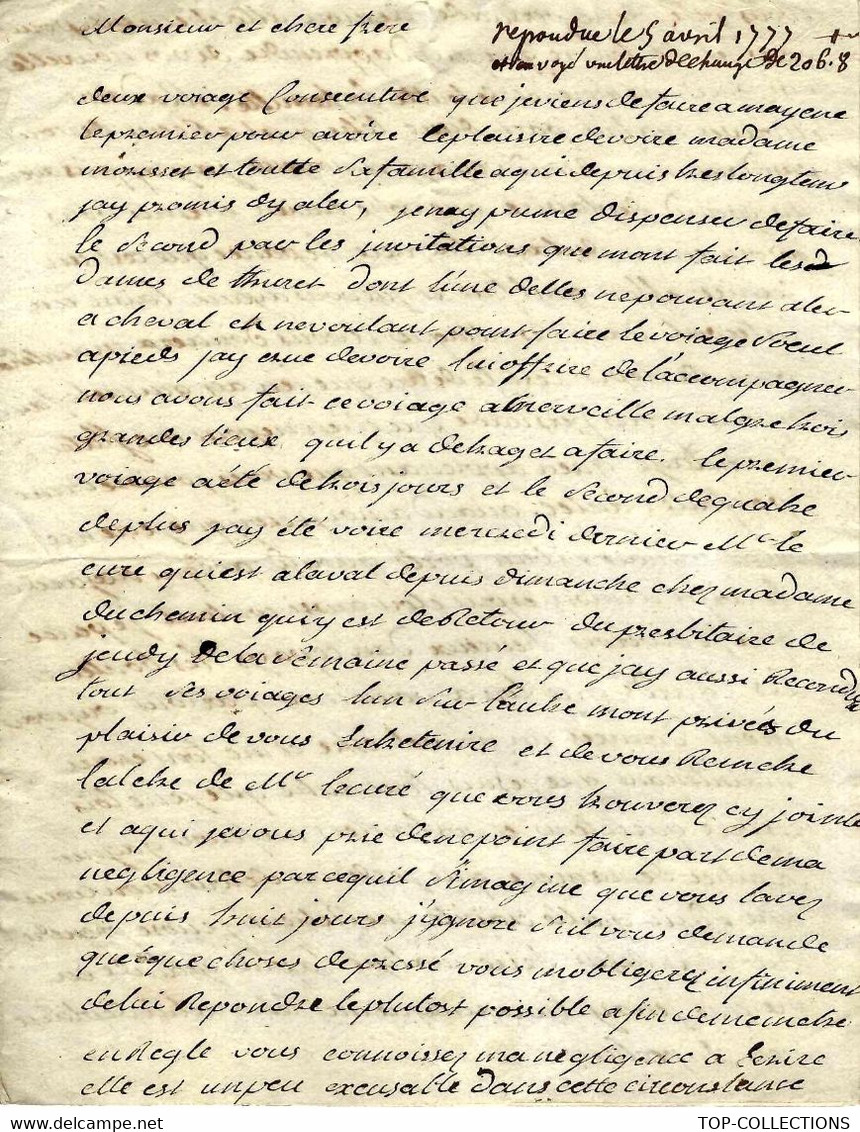 Monsieur et chere frere
repondue le 5 avril 1777
et envoyé une lettre de change de 206.8
deux voiage Consecutive que je viens de faire a mayene
le premier pour avoire le plaisire de voire madame
morisset et toutte sa famille a qui depuis tres longtems
jay promis dy aler, je nay pume dispenser de faire
le second par les jnvitations que mont fait les d
dames de theret dont lune delles ne pouvant aler
a cheval et ne voulant point faire le voiage seul
a pieds jay crue devoire lui offrire de láccompagner
nous avons fait ce voiage a merveille malgre trois
grandes lieux quil y a de traget a faire. le premier
voiage a été de trois jours et le second de quatre
de plus jay été voire mercredi dernier Mr le
cure qui est a laval depuis dimanche chez madame
duchemin qui y est de Retour du presbitaire de
jeudy de la semaine passé et que jay aussi Recondu
tout ses voiages lun sur lautre mont privés du
plaisir de vous entretenire et de vous Remetre
la letre de Mr le curé que vous trouverez cy jointe
et a qui je vous prie de ne point faire part de ma
negligence parce quil simagine que vous lavez
depuis huit jours j'ygnore sil vous demande
quelque choses de pressé vous mobligerez infiniment
de lui Repondre le plutost possible afin de me metre
en Regle vous connoissez ma negligence a Ecrire
elle est un peu excusable dans cette circonstance
TOP-COLLECTIONS